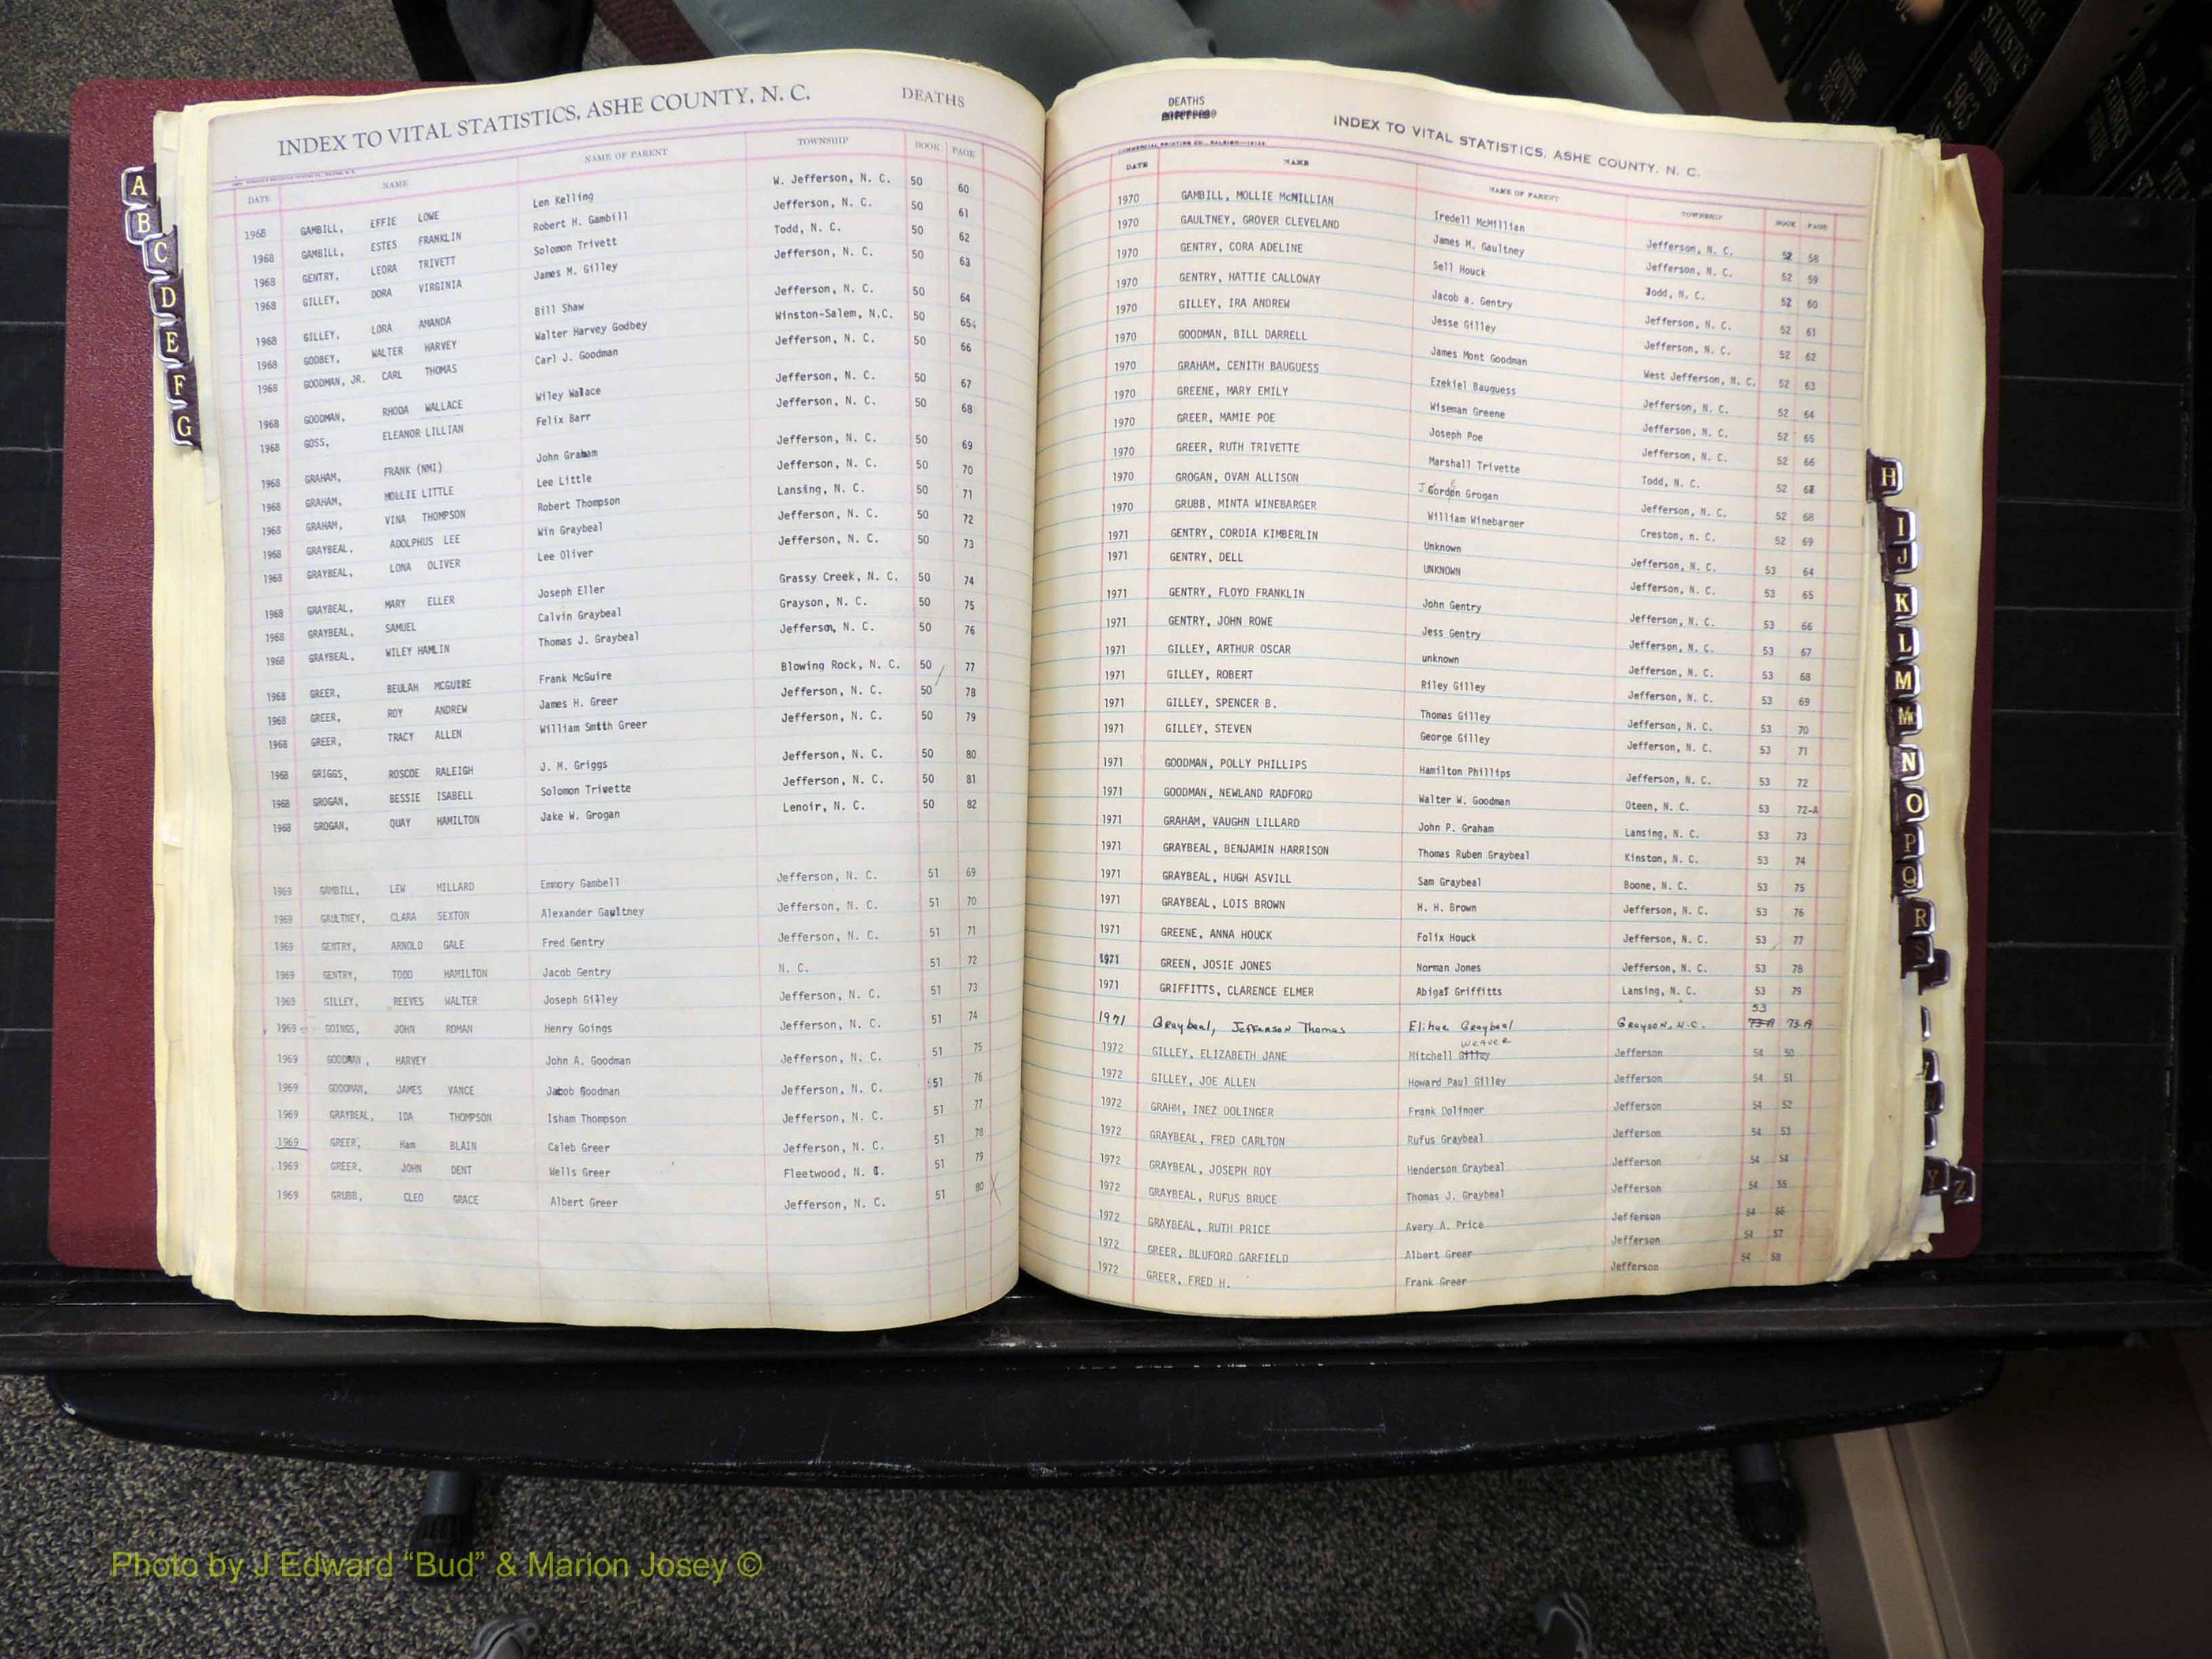 INDEX TO VITAL STATISTICS, ASHE COUNTY, N. C. DEATHS
DATE NAME NAME OF PARENT TOWNSHIP BOOK PAGE
1968 GAMBILL, EFFIE LOWE Len Kelling W. Jefferson, N. C. 50 60
1968 GAMBILL, ESTES FRANKLIN Robert H. Gambill Jefferson, N. C. 50 61
1968 GENTRY, LEORA TRIVETT Solomon Trivett Todd, N. C. 50 62
1968 GILLEY, DORA VIRGINIA James M. Gilley Jefferson, N. C. 50 63
1968 GILLEY, LORA AMANDA Bill Shaw Jefferson, N. C. 50 64
1968 GODBEY, WALTER HARVEY Walter Harvey Godbey Winston-Salem, N.C. 50 65
1968 GOODMAN, JR. CARL THOMAS Carl J. Goodman Jefferson, N. C. 50 66
1968 GOODMAN, RHODA WALLACE Wiley Wallace Jefferson, N. C. 50 67
1968 GOSS, ELEANOR LILLIAN Felix Barr Jefferson, N. C. 50 68
1968 GRAHAM, FRANK (NMI) John Graham Jefferson, N. C. 50 69
1968 GRAHAM, MOLLIE LITTLE Lee Little Jefferson, N. C. 50 70
1968 GRAHAM, VINA THOMPSON Robert Thompson Lansing, N. C. 50 71
1968 GRAYBEAL, ADOLPHUS LEE Win Graybeal Jefferson, N. C. 50 72
1968 GRAYBEAL, LONA OLIVER Lee Oliver Jefferson, N. C. 50 73
1968 GRAYBEAL, MARY ELLER Joseph Eller Grassy Creek, N. C. 50 74
1968 GRAYBEAL, SAMUEL Calvin Graybeal Grayson, N. C. 50 75
1968 GRAYBEAL, WILEY HAMLIN Thomas J. Graybeal Jefferson, N. C. 50 76
1968 GREER, BEULAH MCGUIRE Frank McGuire Blowing Rock, N. C. 50 77
1968 GREER, ROY ANDREW James H. Greer Jefferson, N. C. 50 78
1968 GREER, TRACY ALLEN William Smith Greer Jefferson, N. C. 50 79
1968 GRIGGS, ROSCOE RALEIGH J. M. Griggs Jefferson, N. C. 50 80
1968 GROGAN, BESSIE ISABELL Solomon Trivette Jefferson, N. C. 50 81
1968 GROGAN, QUAY HAMILTON Jake W. Grogan Lenoir, N. C. 50 82
1969 GAMBILL, LEW MILLARD Emmory Gambell Jefferson, N. C. 51 69
1969 GAULTNEY, CLARA SEXTON Alexander Gaultney Jefferson, N. C. 51 70
1969 GENTRY, ARNOLD GALE Fred Gentry Jefferson, N. C. 51 71
1969 GENTRY, TODD HAMILTON Jacob Gentry N. C. 51 72
1969 GILLEY, REEVES WALTER Joseph Gilley Jefferson, N. C. 51 73
1969 GOINGS, JOHN ROMAN Henry Goings Jefferson, N. C. 51 74
1969 GOODMAN, HARVEY John A. Goodman Jefferson, N. C. 51 75
1969 GOODMAN, JAMES VANCE Jacob Goodman Jefferson, N. C. 51 76
1969 GRAYBEAL, IDA THOMPSON Isham Thompson Jefferson, N. C. 51 77
1969 GREER, Ham BLAIN Caleb Greer Jefferson, N. C. 51 78
1969 GREER, JOHN DENT Wells Greer Fleetwood, N. C. 51 79
1969 GRUBB, CLEO GRACE Albert Greer Jefferson, N. C. 51 80
DEATHS
BIRTHS
INDEX TO VITAL STATISTICS, ASHE COUNTY, N. C.
DATE NAME NAME OF PARENT TOWNSHIP BOOK PAGE
1970 GAMBILL, MOLLIE McMILLIAN Iredell McMillian Jefferson, N. C. 52 58
1970 GAULTNEY, GROVER CLEVELAND James M. Gaultney Jefferson, N. C. 52 59
1970 GENTRY, CORA ADELINE Sell Houck Todd, N. C. 52 60
1970 GENTRY, HATTIE CALLOWAY Jacob a. Gentry Jefferson, N. C. 52 61
1970 GILLEY, IRA ANDREW Jesse Gilley Jefferson, N. C. 52 62
1970 GOODMAN, BILL DARRELL James Mont Goodman West Jefferson, N. C. 52 63
1970 GRAHAM, CENITH BAUGUESS Ezekiel Bauguess Jefferson, N. C. 52 64
1970 GREENE, MARY EMILY Wiseman Greene Jefferson, N. C. 52 65
1970 GREER, MAMIE POE Joseph Poe Jefferson, N. C. 52 66
1970 GREER, RUTH TRIVETTE Marshall Trivette Todd, N. C. 52 67
1970 GROGAN, OVAN ALLISON J Gordon Grogan Jefferson, N. C. 52 68
1970 GRUBB, MINTA WINEBARGER William Winebarger Creston, n. C. 52 69
1971 GENTRY, CORDIA KIMBERLIN Unknown Jefferson, N. C. 53 64
1971 GENTRY, DELL UNKNOWN Jefferson, N. C. 53 65
1971 GENTRY, FLOYD FRANKLIN John Gentry Jefferson, N. C. 53 66
1971 GENTRY, JOHN ROWE Jess Gentry Jefferson, N. C. 53 67
1971 GILLEY, ARTHUR OSCAR unknown Jefferson, N. C. 53 68
1971 GILLEY, ROBERT Riley Gilley Jefferson, N. C. 53 69
1971 GILLEY, SPENCER B. Thomas Gilley Jefferson, N. C. 53 70
1971 GILLEY, STEVEN George Gilley Jefferson, N. C. 53 71
1971 GOODMAN, POLLY PHILLIPS Hamilton Phillips Jefferson, N. C. 53 72
1971 GOODMAN, NEWLAND RADFORD Walter W. Goodman Oteen, N. C. 53 72-A
1971 GRAHAM, VAUGHN LILLARD John P. Graham Lansing, N. C. 53 73
1971 GRAYBEAL, BENJAMIN HARRISON Thomas Ruben Graybeal Kinston, N. C. 53 74
1971 GRAYBEAL, HUGH ASVILL Sam Graybeal Boone, N. C. 53 75
1971 GRAYBEAL, LOIS BROWN H. H. Brown Jefferson, N. C. 53 76
1971 GREENE, ANNA HOUCK Folix Houck Jefferson, N. C. 53 77
1971 GREEN, JOSIE JONES Norman Jones Jefferson, N. C. 53 78
1971 GRIFFITTS, CLARENCE ELMER Abigal Griffitts Lansing, N. C. 53 79
53
1971 Graybeal, Jefferson Thomas Elihue Graybeal Grayson, N.C. 73-A 73-A
WEAVER
1972 GILLEY, ELIZABETH JANE Mitchell Gilley Jefferson 54 50
1972 GILLEY, JOE ALLEN Howard Paul Gilley Jefferson 54 51
1972 GRAHM, INEZ DOLINGER Frank Dolinger Jefferson 54 52
1972 GRAYBEAL, FRED CARLTON Rufus Graybeal Jefferson 54 53
1972 GRAYBEAL, JOSEPH ROY Henderson Graybeal Jefferson 54 54
1972 GRAYBEAL, RUFUS BRUCE Thomas J. Graybeal Jefferson 54 55
1972 GRAYBEAL, RUTH PRICE Avery A. Price Jefferson 54 56
1972 GREER, BLUFORD GARFIELD Albert Greer Jefferson 54 57
1972 GREER, FRED H. Frank Greer Jefferson 54 58
A
B
C
D
E
F
G
H
I
J
K
L
M
Mc
N
O
P
Q
R
S
Y Z
VITAL STATISTICS BIRTHS 1963
Photo by J Edward “Bud” & Marion Josey ©